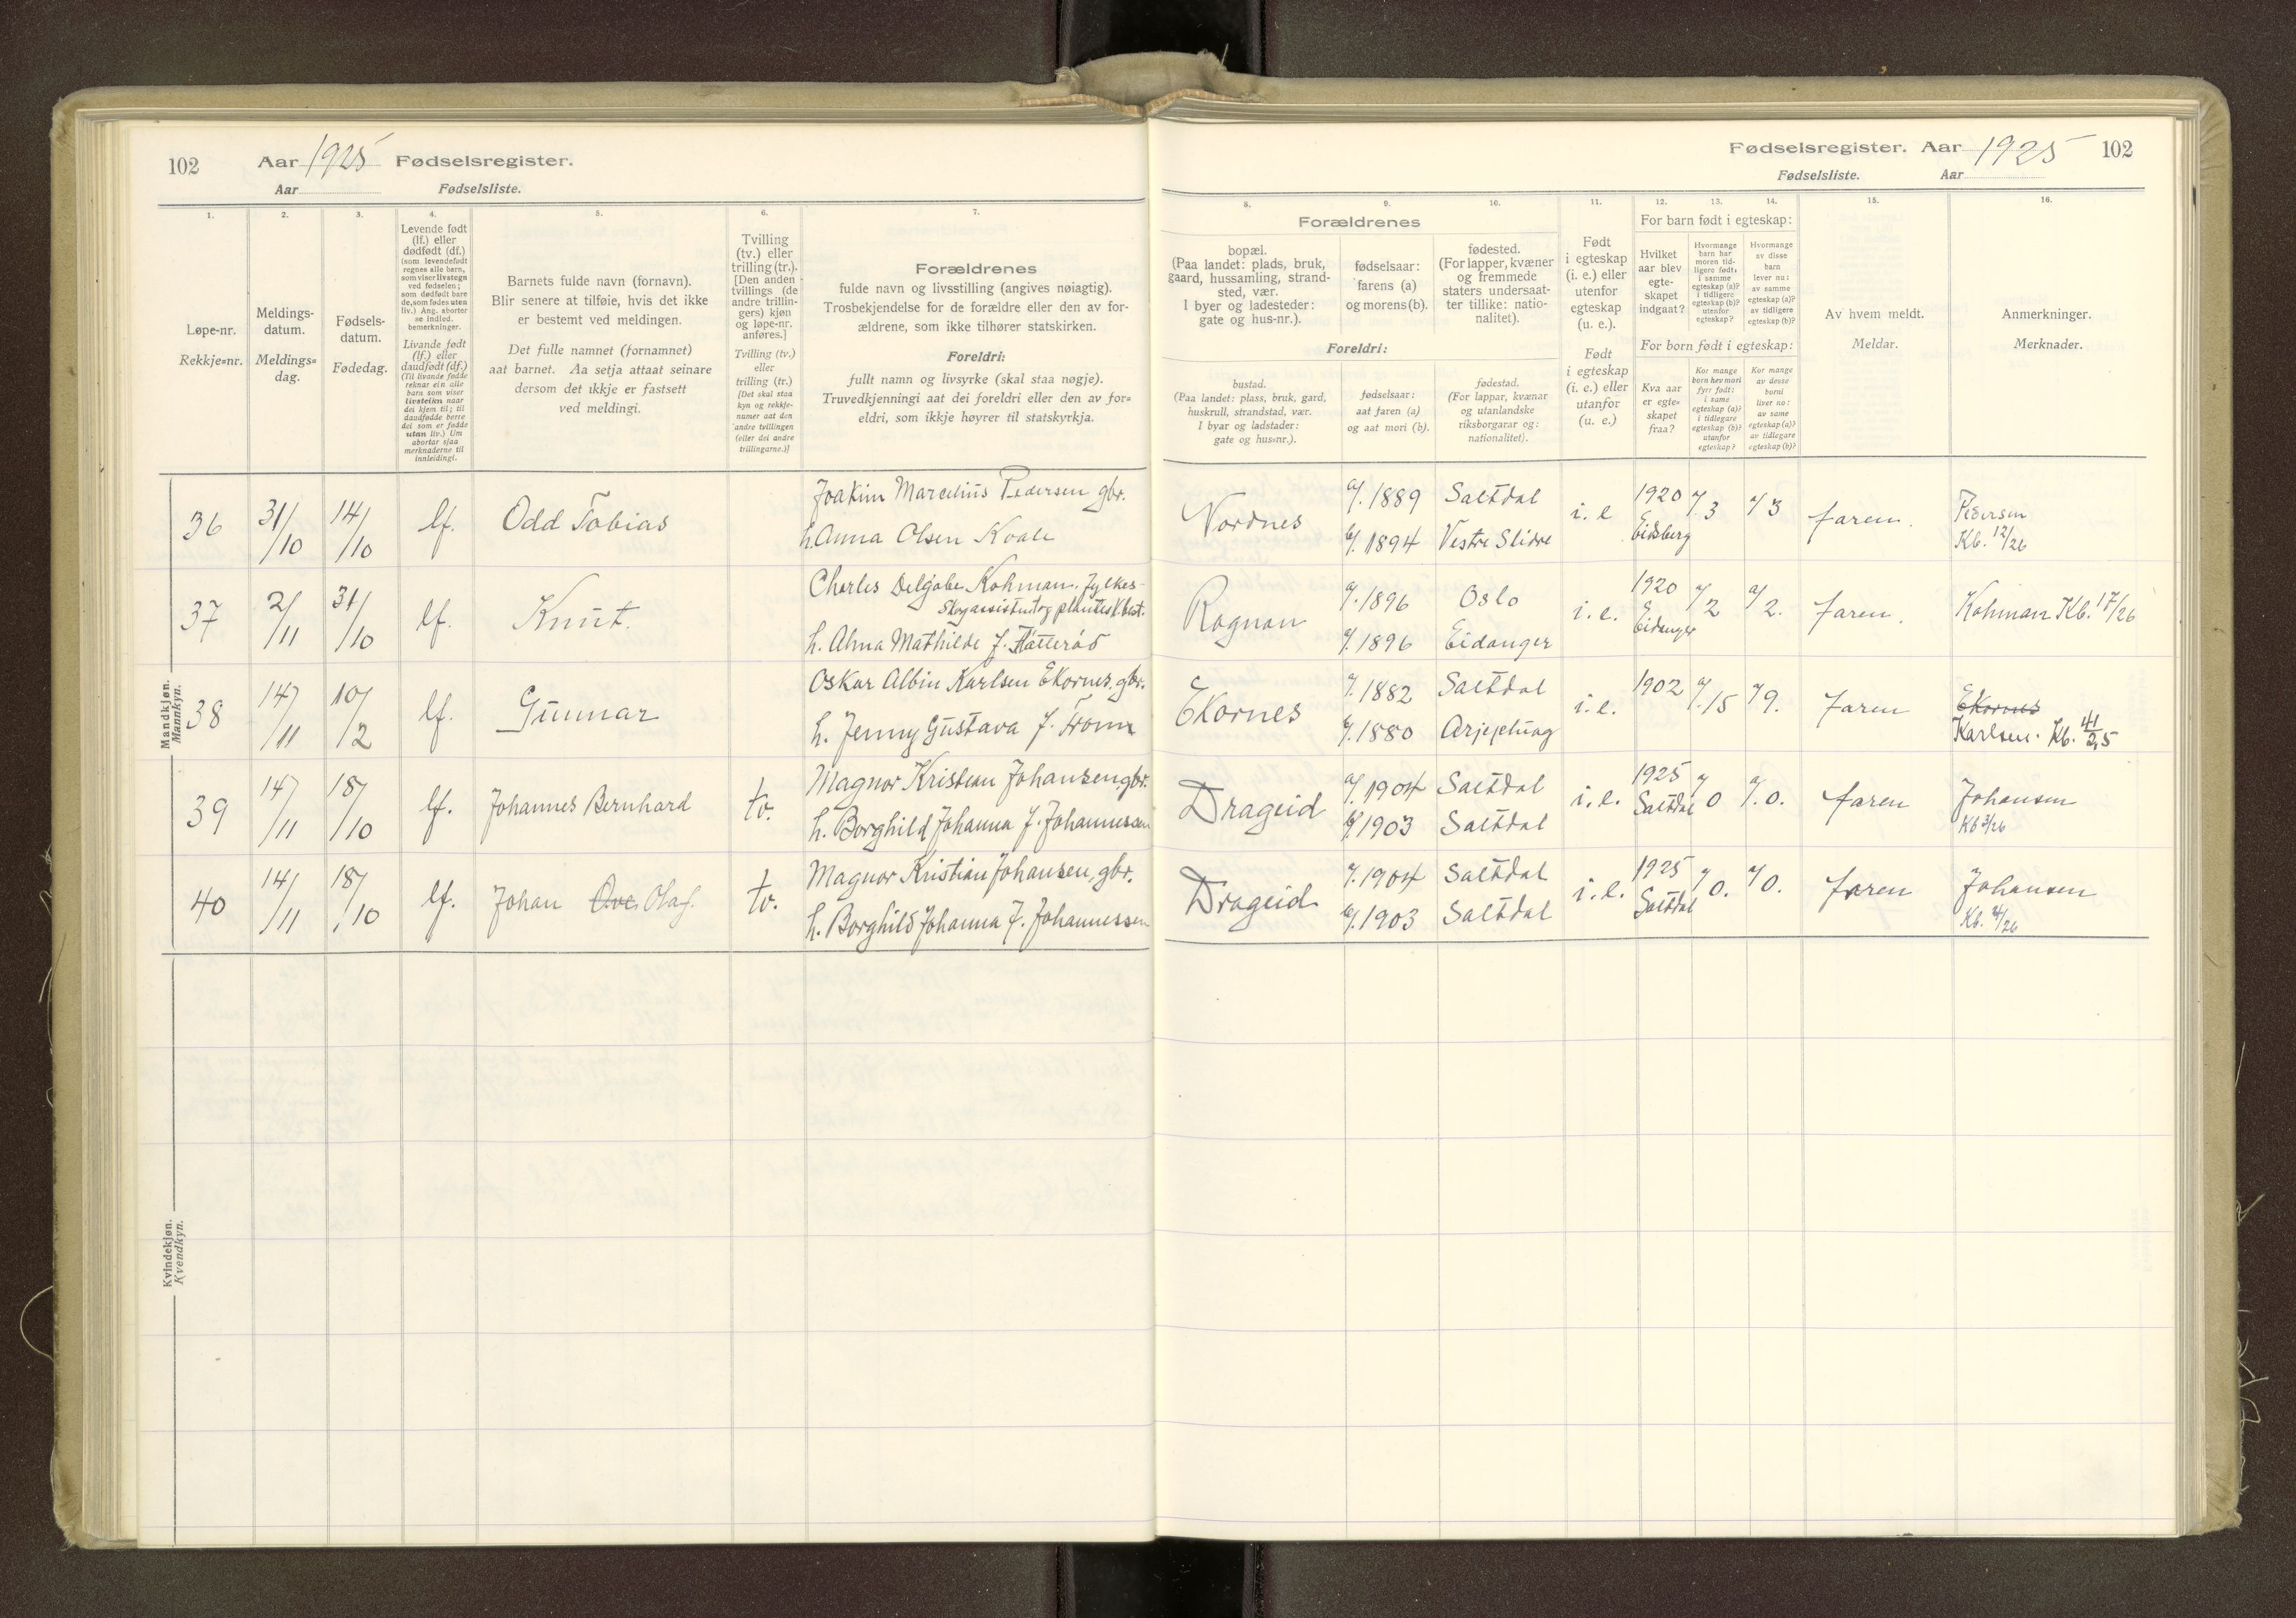 102 Aar 1925 Fødselsregister.
Aar Fødselsliste.
1.
2.
3.
4.
5.
6.
7.
Løpe-nr.
Rekkje=nr.
Meldings-
datum.
Meldings=
dag.
Fødsels-
datum.
Fødedag.
Levende født
(lf.) eller
dødfødt (df.)
(som levendefødt
regnes alle barn,
som viser livstegn
ved fødselen;
som dødfødt bare
de, som fødes uten
liv.) Ang. aborter
se indled.
bemerkninger.
Livande født
(lf.) eller
daudfødt (df.)
(Til livande fødde
reknar ein alle
barn som viser
livsteikn naar
dei kjem til; til
daudfødde berre
dei som er fødde
utan liv.) Um
abortar sjaa
merknaderne til
innleidingi.
Barnets fulde navn (fornavn).
Blir senere at tilføie, hvis det ikke
er bestemt ved meldingen.
Det fulle namnet (fornamnet)
aat barnet. Aa setja attaat seinare
dersom det ikkje er fastsett
ved meldingi.
Tvilling
(tv.) eller
trilling (tr.).
[Den anden
tvillings (de
andre trillin-
gers) kjøn
og løpe-nr.
anføres.]
Tvilling (tv.)
eller
trilling (tr.)
[Det skal staa
kyn og rekkje-
numer aat den
andre tvillingen
(eller dei andre
trillingarne.)]
Forældrenes
fulde navn og livsstilling (angives nøiagtig).
Trosbekjendelse for de forældre eller den av for-
ældrene, som ikke tilhører statskirken.
Foreldri:
fullt namn og livsyrke (skal staa nøgje).
Truvedkjenningi aat dei foreldri eller den av for=
eldri, som ikkje høyrer til statskyrkja.
Mandkjøn.
Mannkyn.
36 31/10 14/10 lf. Odd Tobias
Joakim Marcelius Pedersen gbr.
h. Anna Olsen Kvale
37 2/11 31/10 lf. Knut.
Charles Delgobe Kohman. Fylkes-
Skogassistent og planteskbest.
h. Alma Mathilde f.
38 14/11 10/2 lf. Gunnar
Oskar Albin Karlsen Ekornes, gbr.
h. Jenny Gustava f.
39 14/11 18/10 lf. Johannes Bernhard tv.
Magnor Kristian Johansen, gbr.
h. Borghild Johanna f. Johannessen
40 14/11 18/10 lf. Johan Ove Olaf. tv.
Magnor Kristian Johansen, gbr.
h. Borghild Johanna f. Johannessen
Kvindekjøn.
Kvendkyn.
Fødselsregister. Aar 1925 102
Fødselsliste. Aar
8.
9.
10.
11.
12.
13.
14.
15.
16.
Forældrenes
bopæl.
(Paa landet: plads, bruk,
gaard, hussamling, strand-
sted, vær.
I byer og ladesteder:
gate og hus-nr.).
fødselsaar:
farens (a)
og morens (b).
fødested.
(For lapper, kvæner
og fremmede
staters undersaat-
ter tillike: natio-
nalitet).
Foreldri:
bustad.
(Paa landet: plass, bruk, gard,
huskrull, strandstad, vær.
I byar og ladstader:
gate og hus=nr.).
fødselsaar:
aat faren (a)
og aat mori (b).
fødestad.
(For lappar, kvænar
og utanlandske
riksborgarar og:
nationalitet).
Født
i egteskap
(i. e.) eller
utenfor
egteskap
(u. e.).
Født
i egteskap
(i. e.) eller
utanfor
(u. e.)
For barn født i egteskap:
Hvilket
aar blev
egte-
skapet
indgaat?
Hvormange
barn har
moren tid-
ligere født:
i samme
egteskap (a)?
i tidligere
egteskap (b)?
utenfor
egteskap?
Hvormange
av disse
barn
lever nu:
av samme
egteskap (a)?
av tidligere
egteskap (b)?
For born født i egteskap:
Kva aar
er egte=
skapet
fraa?
Kor mange
born hev mori
fyrr født:
i same
egteskap (a)?
i tidlegare
egteskap (b)?
utanfor
egteskap?
Kor mange
av desse
borni
liver no:
av same
egteskap (a)?
av tidlegare
egteskap (b)?
Av hvem meldt.
Meldar.
Anmerkninger.
Merknader.
Nordnes
a/. 1889 Saltdal
b/. 1894 Vestre Slidre
i. e 1920 Eidsberg a/. 3 a/ 3 faren. Pedersen
Kb. 12/26
Rognan
a/. 1896 Oslo
1896 Eidanger
i. e. 1920 Eidanger a/ 2 a/ 2. faren. Kohman Kb. 17/26
Ekornes
1882 Saltdal
b/. 1880 Arjepluog
i. e. 1902 a/. 15 a/ 9. faren Ekornes
Karlsen. Kb. 41/25
Drageid
a/. 1904 Saltdal
b/. 1903 Saltdal
i. e. 1925 Saltdal a/ 0 a/. 0. faren Johansen
Kb 3/26
Drageid
a/. 1904 Saltdal
b/. 1903 Saltdal
i. e. 1925 Saltdal a/ 0. a/ 0. faren Johansen
Kb. 4/26